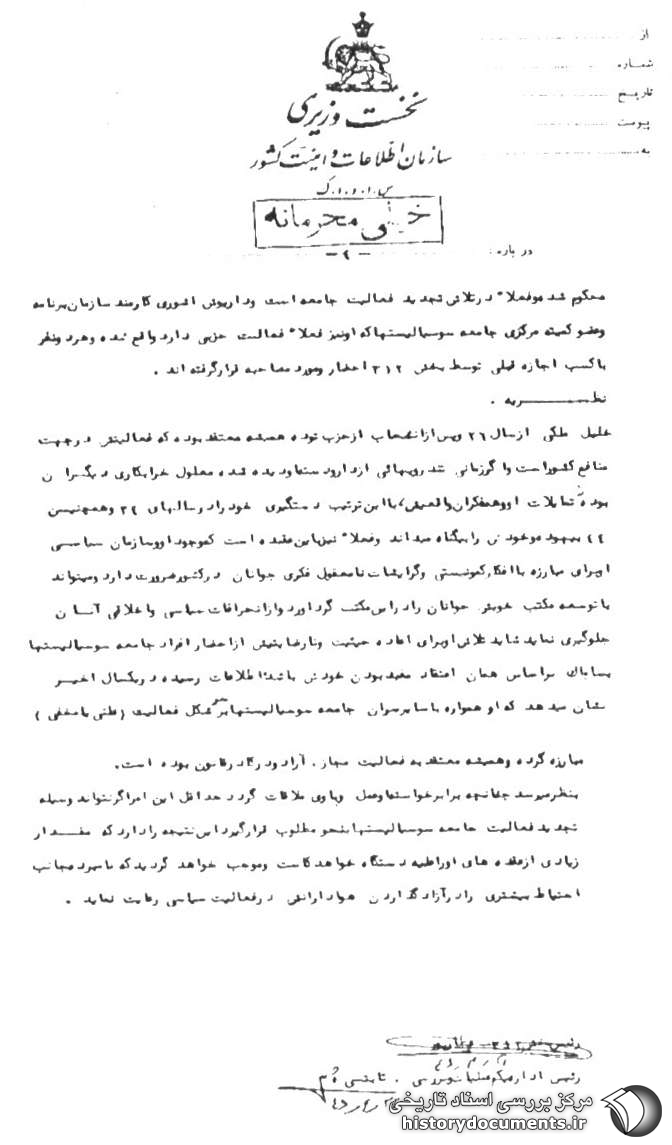 از
شماره
تاریخ
پیوست
به
نخست وزیری
سازمان اطلاعات و امنیت کشور
س.ا.و.ا.ک
خیلی محرمانه
درباره:
محکوم شده و فعلا" در تلاش تجدید فعالیت جامعه است و داریوش آشوری کارمند سازمان برنامه
وعضو کمیته مرکزی جامعه سوسیالیستها که او نیز فعلا" فعالیت حزبی دارد واقع شده و هر دو نفر
با کسب اجازه قبلی توسط بخش ۳۱۲ احضار و مورد مصاحبه قرار گرفته اند.
نظریه.
خلیل ملکی از سال ۲۶ و پس از انشعاب از حزب توده همیشه معتقد بوده که فعالیتش در جهت
منافع کشور است و اگر زمانی تندرویهائی از او و دستهاو دیده شده معلول خرابکاری دیگران
بوده تمایلات او و همفکران واقعیش، با این ترتیب دستگیری خود را در سالهای ۳۲ و همچنین
۴۴ بیهوده و خودش را بیگناه میداند و فعلا" نیز باین عقیده است که وجود او و سازمان سیاسی
او برای مبارزه با افکار کمونیستی و گرایشات نامعقول فکری جوانان در کشور ضرورت دارد و میتواند
با توسعه مکتب خویش جوانان را در این مکتب گرد آورد و از انحرافات سیاسی و اخلاقی آنان
جلوگیری نماید شاید تلاش او برای اعاده حیثیت و نارضایتیش از احضار افراد جامعه سوسیالیستها
بساواک بر اساس همان اعتقاد مفید بودن خودش باشد اطلاعات رسیده در یکسال اخیر
نشان میدهد که او همواره با سایر سران جامعه سوسیالیستها بر سر شکل فعالیت (علنی یا مخفی)
مبارزه کرده و همیشه معتقد به فعالیت مجاز، آزاد و در کادر قانون بوده است.
بنظر میرسد چنانچه برابر خواسته او عمل و با وی ملاقات گردد حداقل این امر اگر نتواند وسیله
تجدید فعالیت جامعه سوسیالیستها بنحو مطلوب قرار گیرد این نتیجه را دارد که مقدار
زیادی از عقده های او را علیه دستگاه خواهد کاست و موجب خواهد گردید که نامبرده جانب
احتیاط بیشتری را در آزاد گذاردن هوادارانش در فعالیت سیاسی رعایت نماید.
رئیس اداره یکم عملیات و بررسی. ثابتی
مرکز بررسی اسناد تاریخی
historydocuments.ir